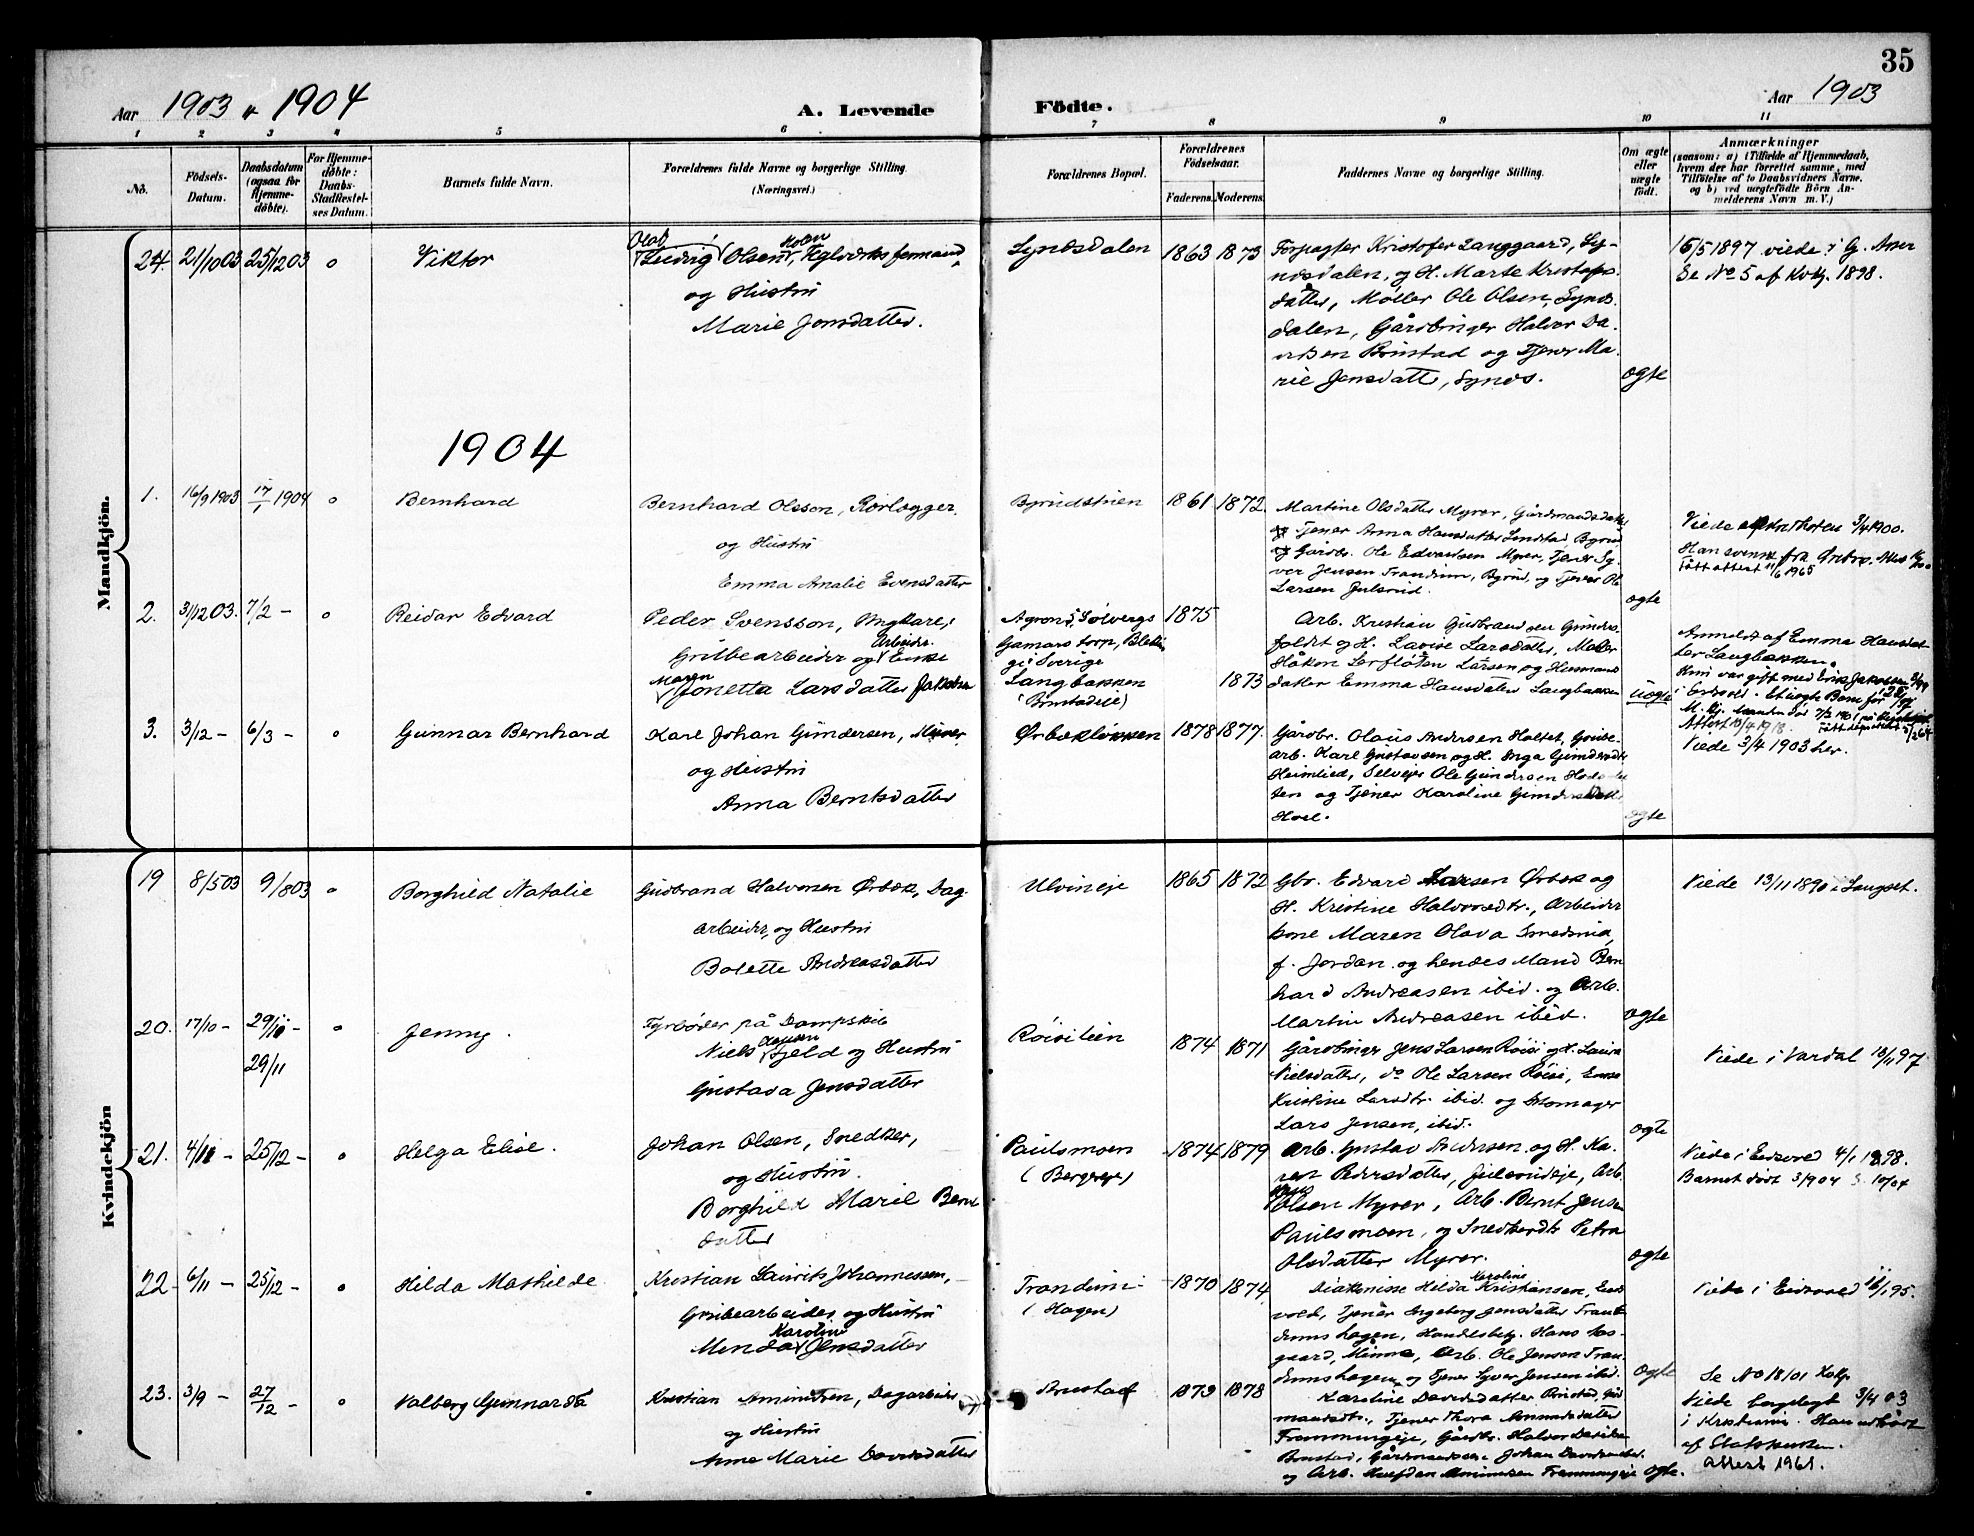 35
Aar 1903 & 1904
A. Levende
Fødte.
Aar 1903
1 2 3 4 5 6 7 8 9 10 11
No.
Födsels-
Datum.
Daabsdatum
(ogsaa for
Hjemme-
døbte).
For Hjemme-
døbte:
Daabs-
Stadfæstel-
ses Datum.
Barnets fulde Navn.
Forældrenes fulde Navne og borgerlige Stilling
(Næringsvei.)
Forældrenes Bopæl.
Forældrenes
Födselsaar.
Faderens. Moderens.
Faddernes Navne og borgerlige Stilling.
Om ægte
eller
uægte
födt.
Anmærkninger
(saasom: a) i Tilfælde af Hjemmedaab,
hvem der har forrettet samme, med
Tilføielse af to Daabsvidners Navne,
og b) ved uægtefödte Börn An-
melderens Navn m. V.)
Mandkjön.
24. 21/10 03 25/12 03 o Viktor
Olaf Holen
Ludvig Olsen, Teglværksformand,
og Hustru
Marie Jonsdatter.
Syndsdalen 1863 1873
Forpagter Kristofer Langgaard, Sy-
ndsdalen, og H. Marte Kristofers-
datter, Møller Ole Olsen, Synds-
dalen, Gårdbruger Halvor Da-
vidsen Brustad og Tjener Ma-
rie Jensdatter, Synds.
ægte
16/5 1897 viede i
Se No 5 af Kvkj. 1898.
1904
1. 16/9 1903 17/1 1904 o Bernhard
Bernhard Olsson, Rørlægger,
og Hustru
Emma Amalie Evensdatter
Byrudstuen 1861 1872.
Martine Olsdatter Myrer, Gårdmandsdatter
og Tjener Anna Hansdatter Byrud
og Gårdbr. Ole Edvardsen Myrer, Tjener Sy-
ver Jensen Trandum, Byrud, og Tjener Ole
Larsen Julsrud.
ægte
Viede 3/4 1900.
Han svensk fra Ørebro.
Født attest 11/6 1965
2. 3/12 03. 7/2 – o Reidar Edvard
Peder Svensson, Ungkarl,
Grubearbeider og Arbeider Enke
Maren
Jonetta Larsdatter Jakobsen
Agrond, Sølvergs
Gamarstorp, Blekin-
ge i Sverige
Langbakken
(Brustadeie)
1875
1873
Arb. Kristian Gudbrandsen Gunders-
foldet og H. Lovise Larsdatter, Maler
Håkon Serfloten Larsen og Husmands-
datter Emma Hansdatter Langbakken
uægte
Anmeldt af Emma Hansdat-
ter Langbakken.
Hun var gift med Erik Jakobsen
i Eidsvold.
Attest 13/4 1918.
3. 3/12 – 6/3 – o Gunnar Bernhard
Karl Johan Gundersen, Murer,
og Hustru
Anna Berntsdatter
Ørbækløkken 1878 1877.
Gårdbr. Olaus Andersen Holtet, Grube-
arb. Karl Gustavsen og H. Inga Gundersdtr
Heimlied, Selveier Ole Gundersen
og Tjener Karoline Gundersdatter
Hoel.
ægte
Viede 3/4 1903 her.
Kvindekjön
19 8/5 03 9/8 03 o Borghild Natalie
Gudbrand Halvorsen Ørbæk, Dag-
arbeider, og Hustru
Bolette Andreasdatter
Ulvineie 1865 1872
Gbr. Edvard Larsen Ørbæk og
H. Kristine Halvorsdtr., Arbeider-
kone Maren Olava Smedsrud,
f. Jordan og hendes Mand Bern-
hard Andreasen ibid. og Arb.
Martin Andreasen ibid.
ægte
Viede 13/11 1890 i Langset.
20. 17/10 – 29/11 – o Jenny.
29/11
Fyrbøder på Dampskib
Niels Hansen Fjeld og Hustru
Gustava Jensdatter
Røisilien 1874 1871
Gårdbruger Jens Larsen Røisi og H. Laura
Nielsdatter, do Ole Larsen Røisi, Enke
Kristine Larsdtr. ibid. og Skomager
Lars Jensen, ibid.
ægte
Viede i Vardal 18/11 97
21. 4/11 – 25/12 – o Helga Elise.
Johan Olsen, Snedker,
og Hustru
Borghild Marie Bernt-
datter
Paulsmoen
(Bergseie)
1874 1879
Arb. Gustav Andersen og H. Ka-
ren Pedersdatter, Julsrudeie, Arb.
Olsen Myrer, Arb. Bernt Jensen
Paulsmoen, og Snedkerdtr Petra
Olsdatter Myrer.
ægte
Viede i Eidsvold 4/1 1898.
Barnet død 3/9 04
22 – 6/11 – 25/12 – o Hilda Mathilde
Kristian Laurits Johannessen,
Grubearbeider, og Hustru
Karoline
Menda Jensdatter
Trandum
(Hagen)
1870 1874
Karoline
Diakonisse Hilda Kristiansen, Eids-
vold, Tjener Ingeborg Jensdatter Tran-
dumshagen, Handelsbetj. Hans Aas-
gaard, Minne, Arb. Ole Jensen Tran-
dumshagen og Tjener Syver Jensen ibid.
ægte
Viede i Eidsvold 95.
23. 3/9 – 27/12 – o Valborg Gunnarda
Kristian Amundsen, Dagarbeider
og Hustru
Anne Marie Davidsdatter
Brustad 1879 1878
Karoline Davidsdatter Brustad, Gård-
mandsdtr., Tjener Thora Amundsdatter
Frammungeie, Gårdbr. Halvor Davidsen
Brustad, Gårdmandssøn Johan Davidsen ibid.
og Arb. Amundsen Frammungeie
ægte.
Se No 18/01
Viede borgerligt 3/4 03
i Kristiania. Han udtrådt
af Statskirken.
Attest 1961.